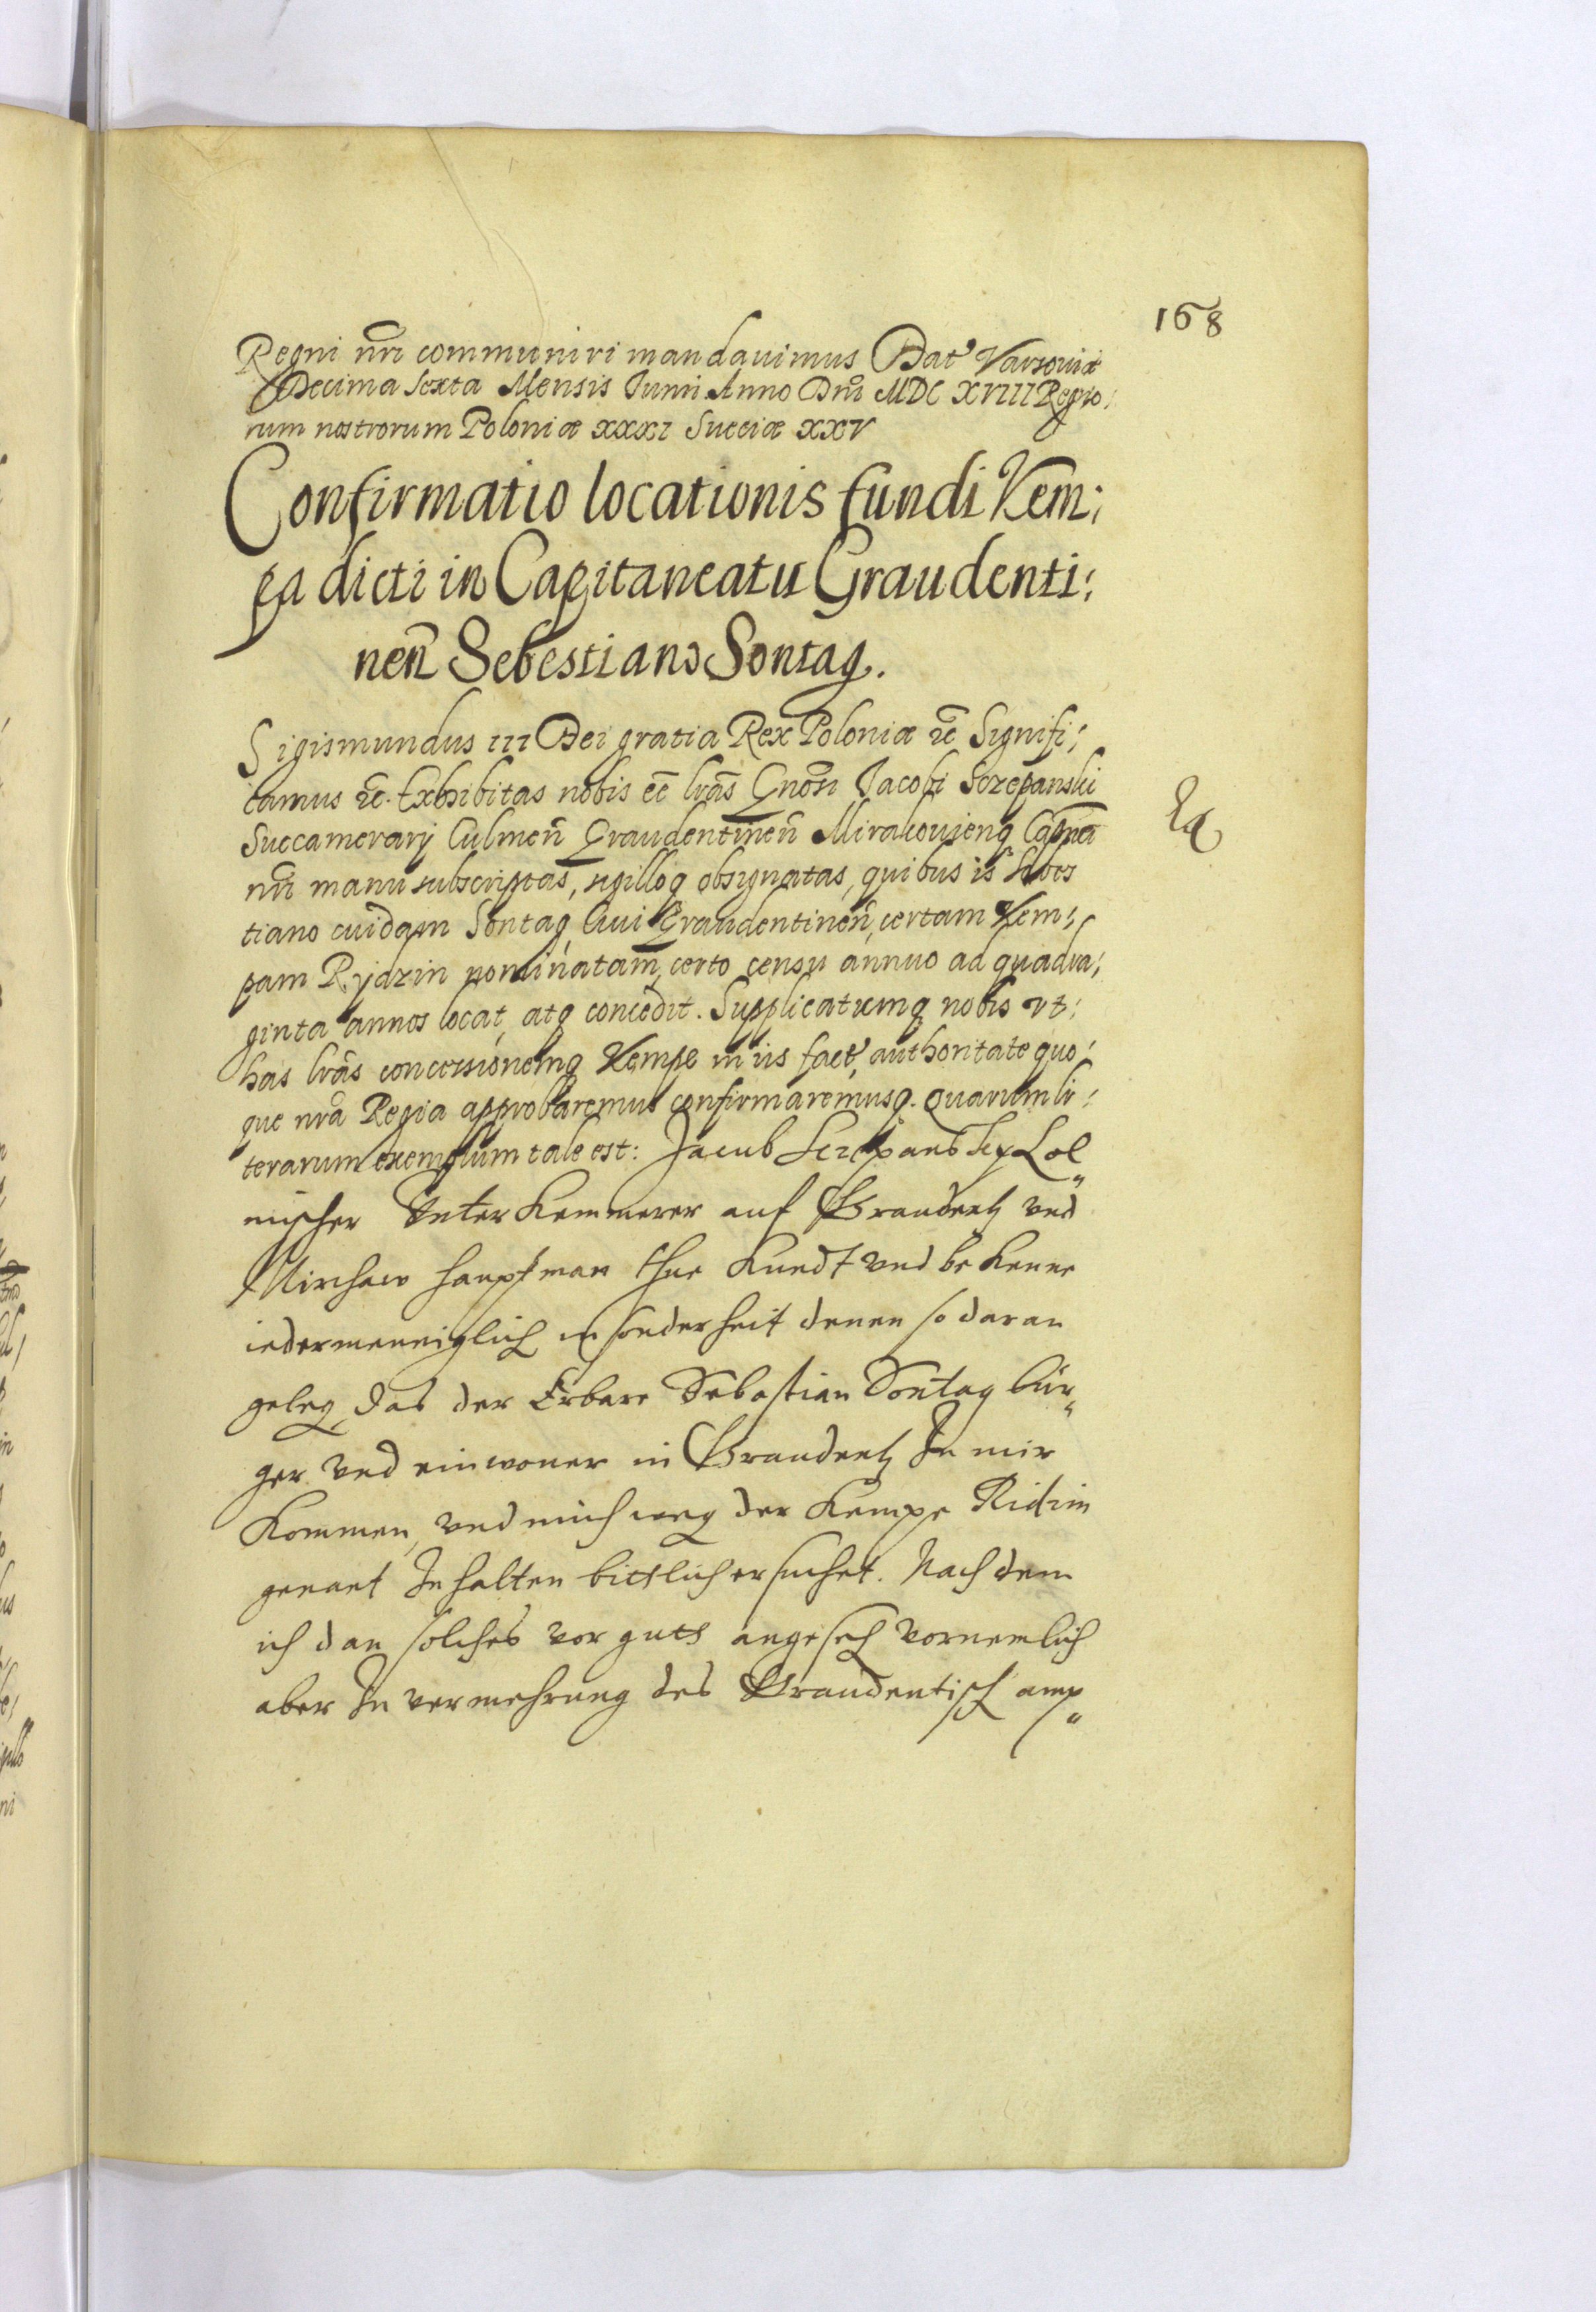 168
Regni nr̃i communiri mandauimus Dat' Varsouiæ
Decima Sexta Mensis Iunii Anno Dni MDC XVIII Regno:
rum nostrorum Poloniæ XXXI Sueciæ XXV
Confirmatio locationis fundi Kem:
pa dicti in Capitaneatu Graudenti:
neñ Sebestiano Sontag.
Sigismundus III Dei gratia Rex Poloniæ &c Signifi:
camus &c. Exhibitas nobis eẽ lr̃as Gnõsi Jacobi Sczepanski
Succamerarij Culmeñ Graudentineñ Mirakouienq Capnei
nr̃i manu subscriptas, sigilloq obsignatas, quibus is Sebes
tiano cuidam Sontag Ciui Graudentineñ, certam Kem:
pam Rydzin nominatam, certo censu annuo ad quadra:
ginta annos locat, atq concedit. Supplicatumq nobis vt:
has lr̃as concessionemq Kempe in iis fact', authoritate quo:
que nr̃a Regia approbaremus confirmaremusq. Quarum lit:
terarum exemplum tale est: Jacub Sczepansky Col„
mischer Vnter Kemmerer auf Graudentz vnd
Mirchaw Hauptman thue Kundt vnd bekenne
iedermenniglich in sonderheit denen so daran
geleg, das der Erbare Sebastian Sontag bür„
ger vnd einwoner in Graudentz Zu mir
Kommen, vnd mich weg der Kempe Ridzin
genant Zu halten bittlich ersuchet. Nach dem
ich dan solches vor guth angeseh vornemlich
aber Zu vermehrung des Graudentisch amp„